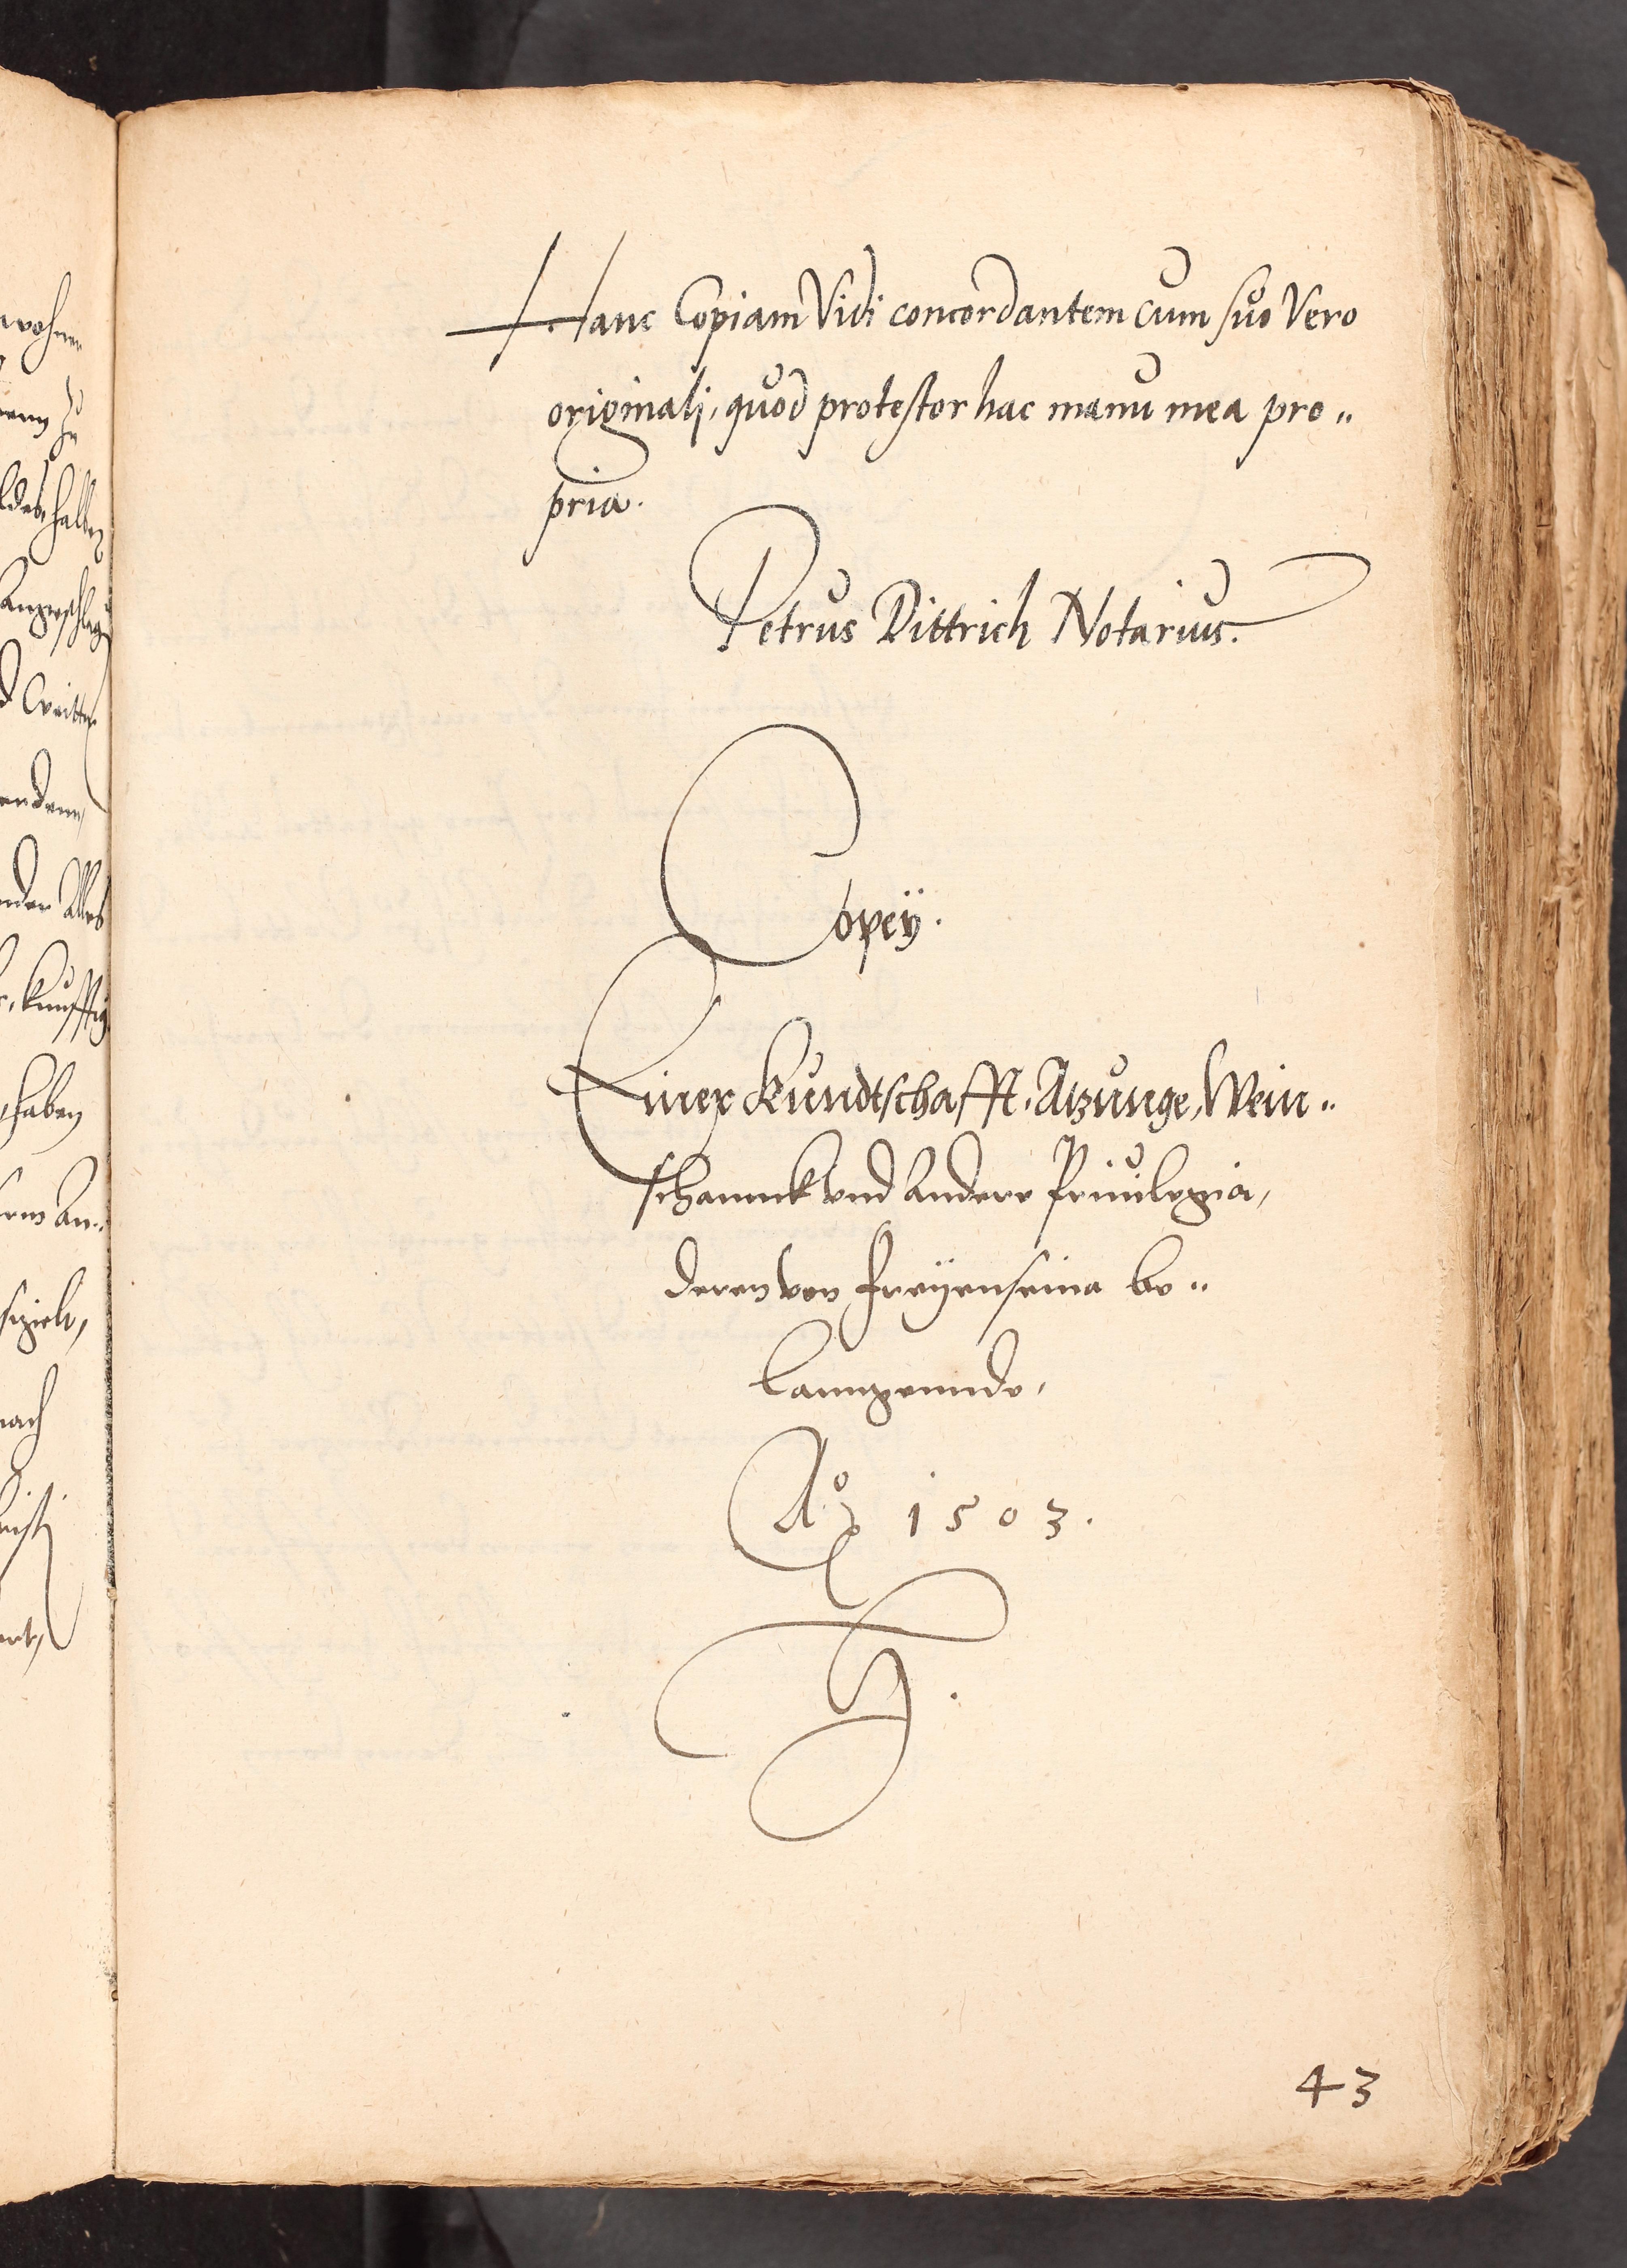 Hanc Copiam Vidi concordantem cum suo Vero
originali, quod protestor hac manu mea pro„
pria.
Petrus Dittrich Notarius.
Copeÿ.
Einer Kundtschafft, Atzunge, Wein„
schannck vnd Andere Priuilegia,
deren von Freÿenseina be„
lanngennde,
Aọ 1503.
43